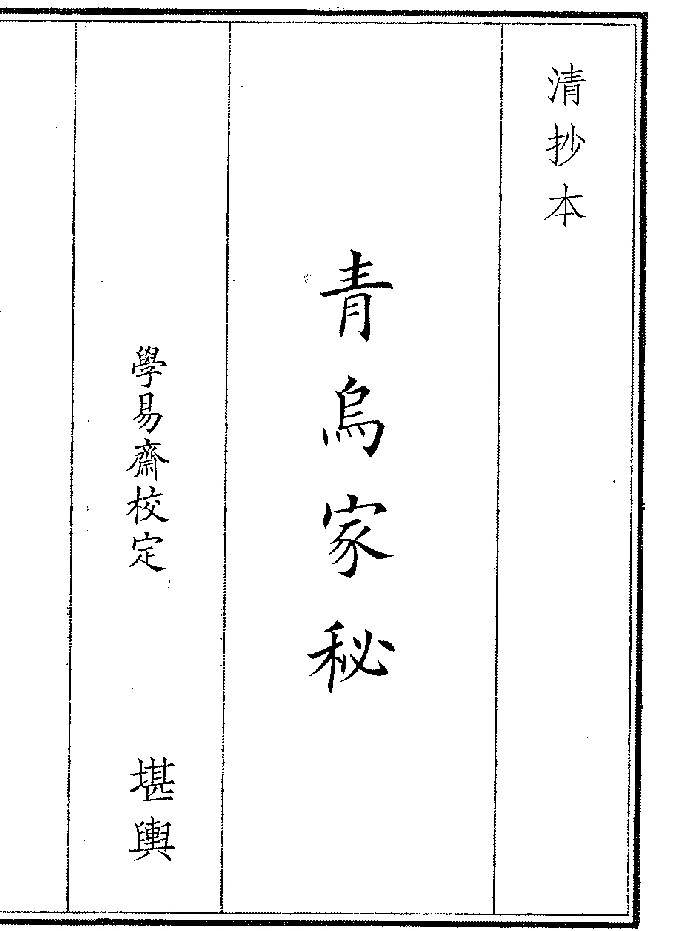 清抄本
青烏家秘
學易齋校定
堪輿